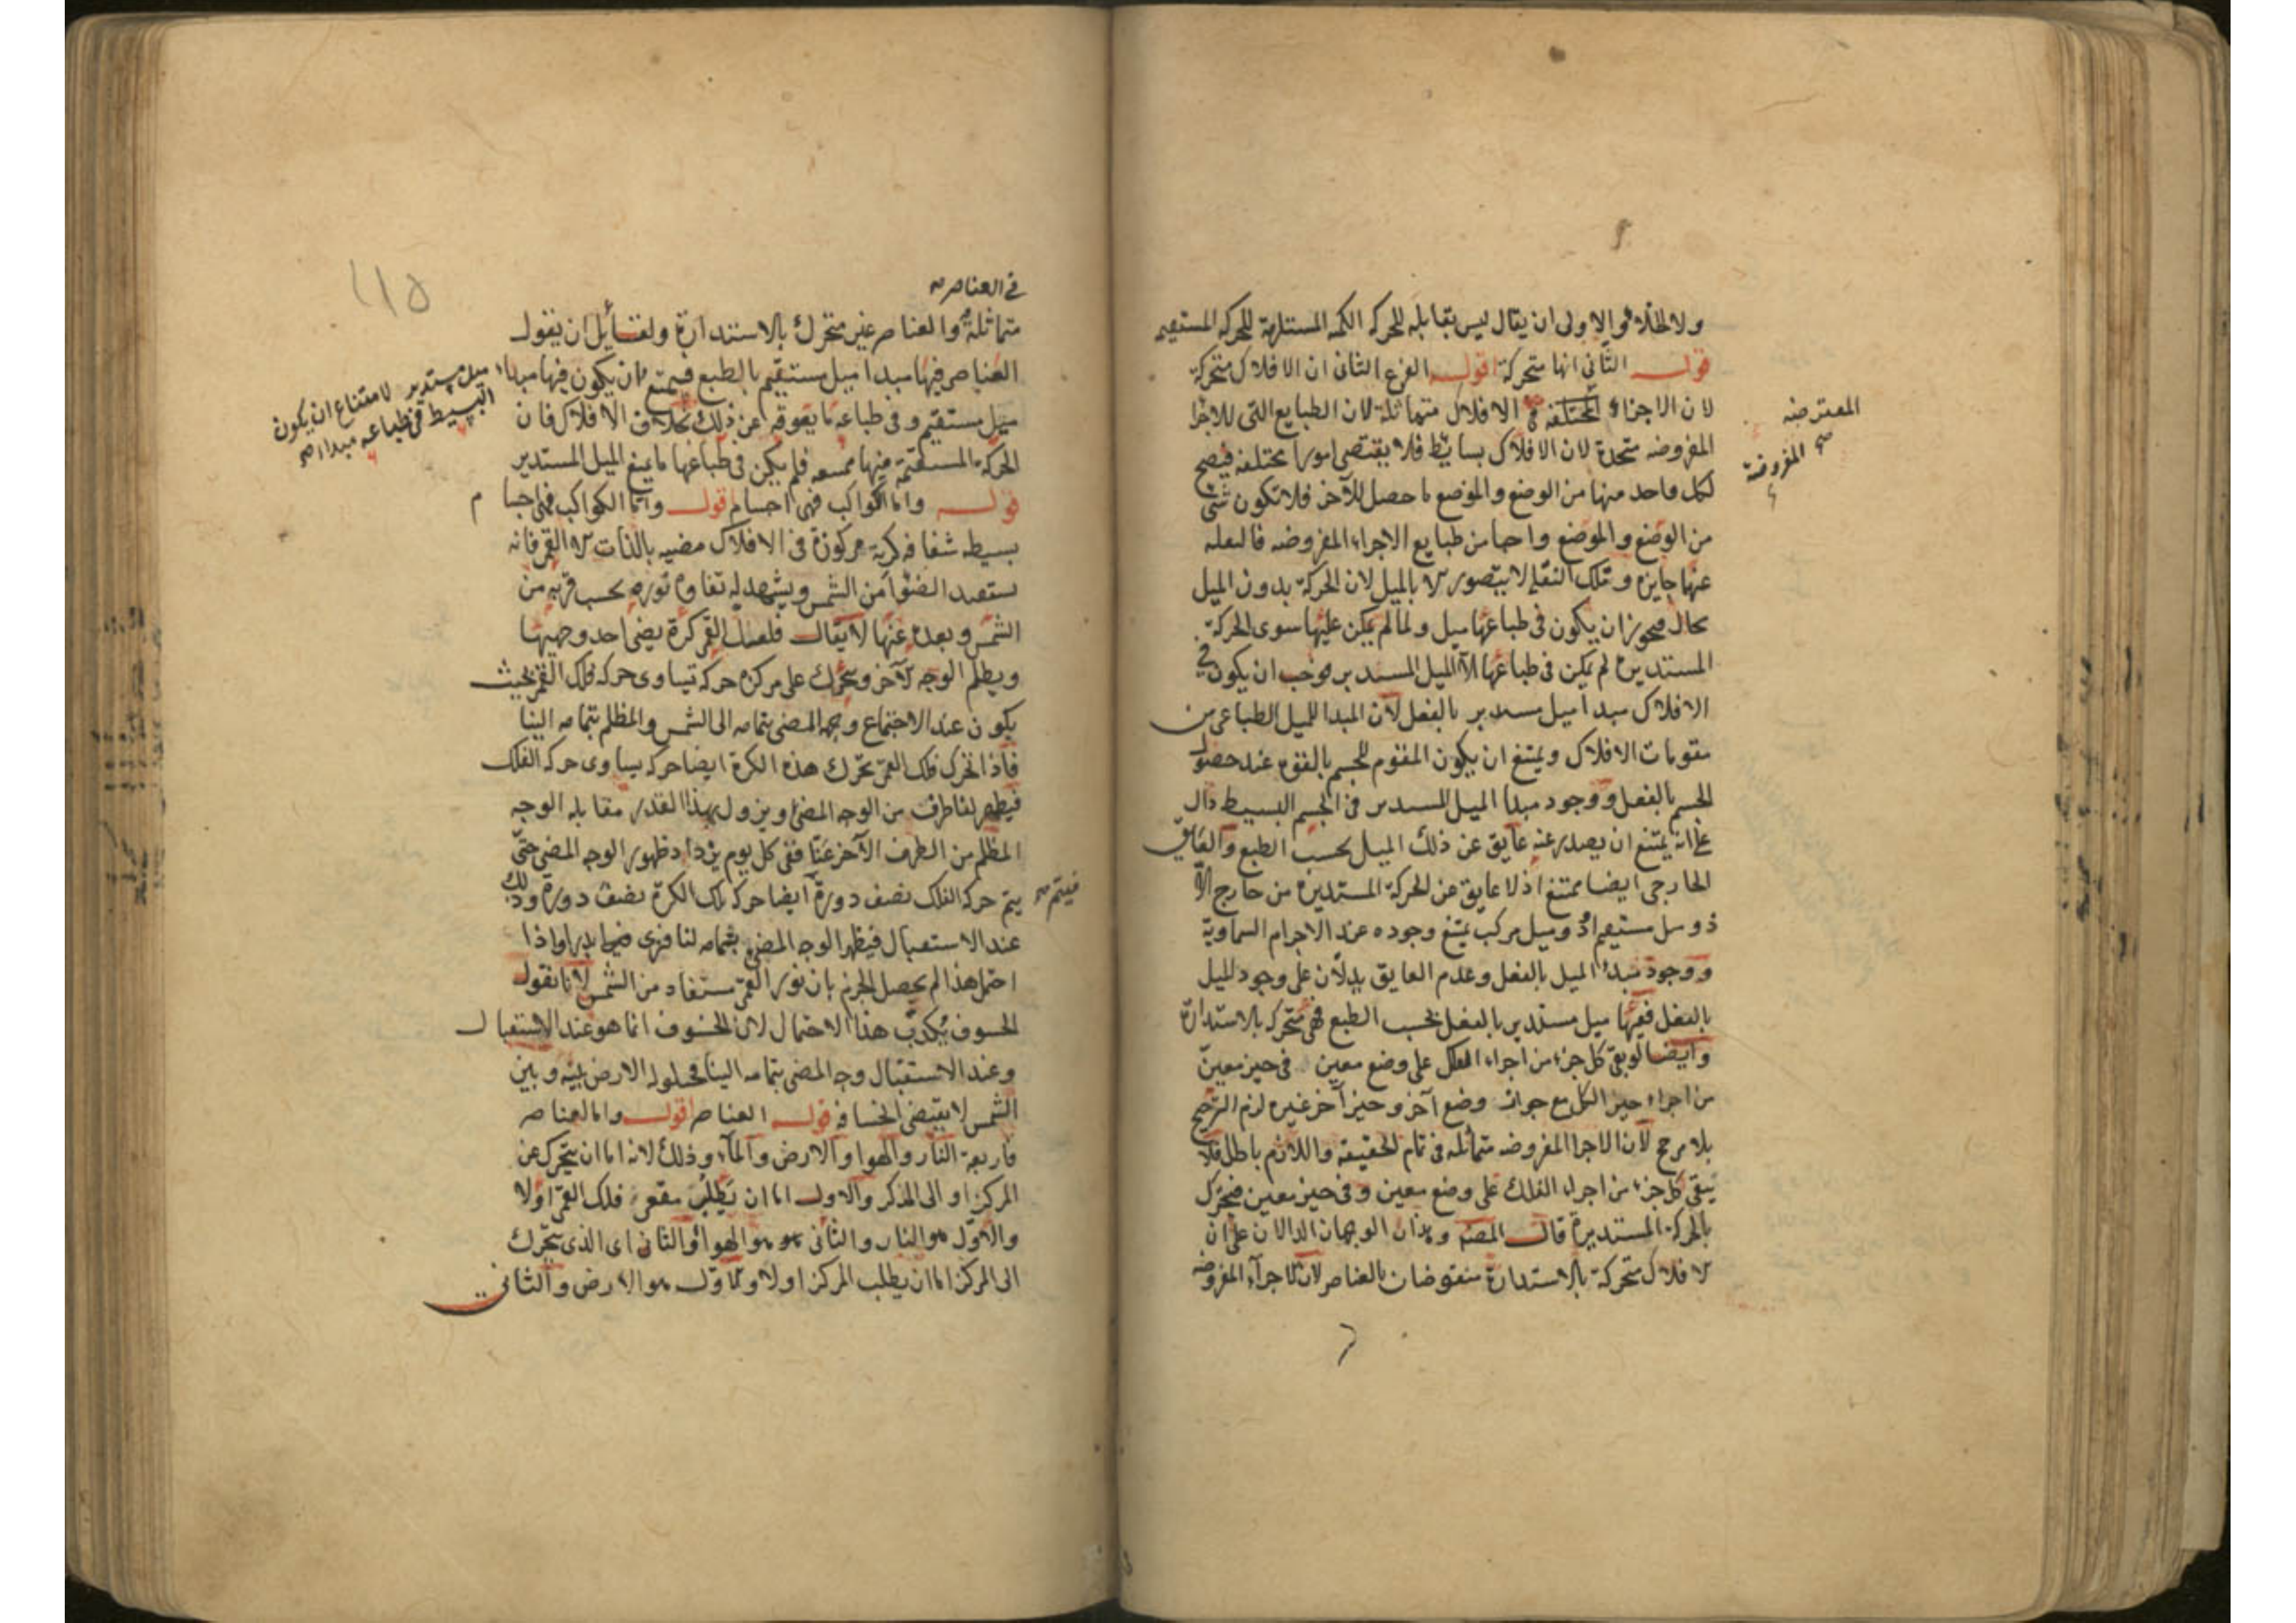 ولا الخلاء والاولى ان يقال ليس بقابله للحركه الكمه المستلزمة للحركه المستقيمه
قوله الثاني انها متحركة اقول الفرع الثاني ان الافلاك متحركة
لان الاجزاء المختلفه الافلاك متماثلة لان الطبايع التى للاجزا
المعترضه
صح المفروضة
المفروضه متحدة لان الافلاك بسائط فلا يقتضى امورا مختلفه فيصح
لكل واحد منها من الوضع والموضع ما حصل للآخر فلا تكون شئ
من الوضع والموضع واجبا من طبايع الاجراء المفروضه فالنقله
عنها جايزه وتلك النقلة لا يتصور الا بالميل لان الحركة بدون الميل
محال فيجوز ان يكون فى طباعها ميل ولما لم يكن عليها سوى الحركة
المستديره لم يكن فى طباعها الا الميل المستدير فوجب ان يكون في
الافلاك مبدا ميل مستدير بالفعل لان المبدا للميل الطباعى من
مقومات الافلاك ويمتنع ان يكون المقوم للجسم بالقوه عند حصول
الجسم بالفعل ووجود مبدا الميل المستدير فى الجسم البسيط دال
على انه يمتنع ان يصدر عنه عايق عن ذلك الميل بحسب الطبع والعايق
الخارجى ايضا ممتنع اذ لا عايق عن الحركة المستديره من خارج الا
ذو ميل مستقيم او ذو ميل مركب يمتنع وجوده عند الاجرام السماوية
ووجود مبدء الميل بالفعل وعدم العايق يدلان على وجود الميل
بالفعل ففيها ميل مستدير بالفعل بحسب الطبع فهى متحركه بالاستدارة
وايضا لو بقى كل جزء من اجراء الفلك على وضع معين فى حيز معين
من اجراء حيز الكل مع جواز وضع آخر وحيز آخر غيره لزم الترجيح
بلا مرجح لان الاجرا المفروضه متماثله فى تمام الحقيقه واللازم باطل فلا
يبقى كل جزء من اجراء الفلك على وضع معين وفى حيز معين فيتحرك
بالحركة المستديرة قال المصنف وهذان الوجهان الدالان على ان
الافلاك متحركة بالاستدارة منقوضان بالعناصر لان الاجرآء المفروضه
في العناصر صح
متماثلة والعناصر غير متحرك بالاستدارة ولقائل ان يقول
العناصر فيها مبدا ميل مستقيم بالطبع فيمتنع ان يكون فيها مبدا
ميل مستدير لامتناع ان يكون
البسيط فى طباعه مبدا صح
ميل مستقيم وفى طباعه ما يعوقه عن ذلك بخلاف الافلاك فان
الحركة المستقيمة منها ممتنعه فلم يكن فى طباعها ما يمنع الميل المستدير
قوله واما الكواكب فهى احسام اقول واما الكواكب فهى اجسام
بسيطه شفافه كرية مركوزة فى الافلاك مضيه بالذات الا القمر فانه
يستفيد الضوا من الشمس ويشهد له تفاوت نوره بحسب قربه من
الشمس وبعده عنها لا يقال فلعل القمر كرة يضى احد وجهيها
ويظلم الوجه الآخر ويتحرك على مركزه حركه تساوى حركه فلك القمر بحيث
يكون عند الاجتماع وجهه المضى بتمامه الى الشمس والمظلم بتمامه الينا
فاذا تحرك فلك القمر تحرك هذه الكرة ايضا حركه يساوى حركه الفلك
فيظهر لنا طرف من الوجه المضئ ويزول بهذا القدر مقابله الوجه
المظلم من الطرف الآخر عنا ففى كل يوم يزداد ظهور الوجه المضى حتى
فيتم صح
يتم حركه الفلك نصف دورة ايضا حركه تلك الكرة نصف دورة وذلك
عند الاستقبال فيظهر الوجه المضى بتمامه لنا فنرى بدرا واذا
احتمل هذا لم يحصل الجزم بان نور القمر مستفاد من الشمس لانا نقول
الخسوف يكذب هذا الاحتمال لان الخسوف انما هو عند الاستقبال
وعند الاستقبال وجه المضى بتمامه الينا فحيلولة الارض بينه وبين
الشمس لا يقتضى انخسافه قوله العناصر اقول واما العناصر
فاربعة النار والهوا والارض والمآء وذلك لانه اما ان يتحرك عن
المركز او الى المركز والاول اما ان يطلب مقعر فلك القمر اولا
والاول هو النار والثانى هو الهوا والثانى اى الذى يتحرك
الى المركز اما ان يطلب المركز اولا والاول هو الارض والثانى
١١٥